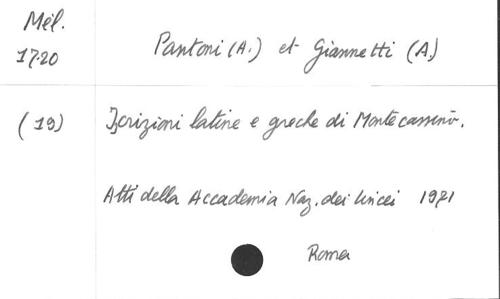 Mél.
1720
Pantoni (A.) et Giannetti (A.)
(19)
Iscrizioni latine e greche di Montecassino.
Atti della Accademia Naz. dei Lincei 1971
Roma